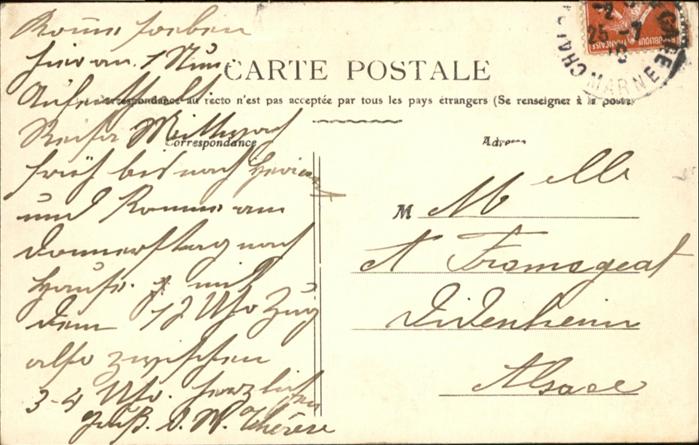 Komme soeben
hier an. 1 Stun
CARTE POSTALE
Aufenthalt.
Correspondance au recto n'est pas acceptée par tous les pays étrangers (Se renseigner à la poste)
Reise Mittwoch
Correspondance
Adresse
früh bis nach
und komme am
Donnerstag nach
Hause. mit
dem 12 Uhr Zug
also zwischen
3-4 Uhr. herzlichen
Gruß. Thérèse
M Melle
A Fromageat
Didenheim
Alsace
25-7
MARNE